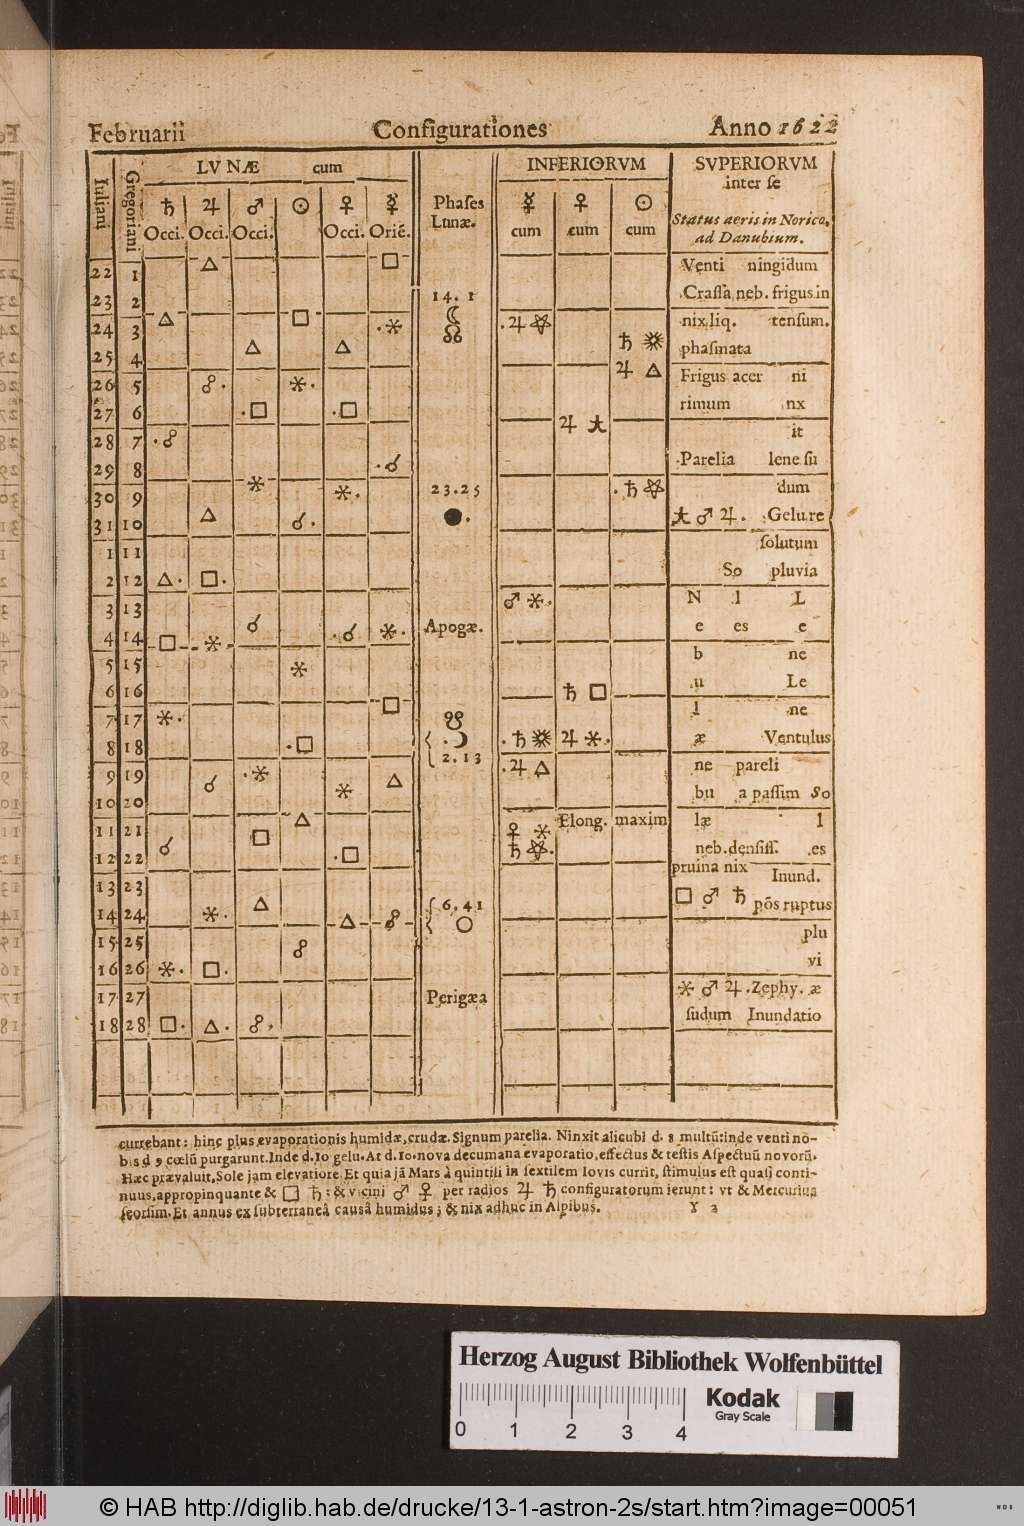 Februarii Configurationes Anno 1622
Iuliani Gregoriani LVNÆ cum Phaſes Lunæ. INFERIORVM SVPERIORVM
inter ſe
♄ ♃ ♂ ☉ ♀ ☿ ☿ ♀ ☉
Occi. Occi. Occi. Occi. Oriē. cum cum cum
Status aeris in Norico,
ad Danubium.
22 1 △ □ Venti ningidum
23 2 14. 1 Craſſa neb. frigus.in
24 3 △ □ .⚹ ☾ .♃ nix liq. tenſum.
25 4 △ △ ☊ ♄ phaſmata
26 5 ☍. ⚹. ♃ △ Frigus acer ni
27 6 .□ .□ rimum nx
28 7 .☍ ♃ it
29 8 .☌ .Parelia lene ſu
30 9 ⚹ ⚹. 23.25 .♄ dum
31 10 △ ☌. ●. ♂ ♃. Gelu.re
1 11 ſolutum
2 12 △. □. So pluvia
3 13 ☌ ♂ ⚹. N l L
4 14 □ ⚹ .☌ ⚹. Apogæ. e es e
5 15 ⚹ b ne
6 16 ♄ □ u Le
7 17 ⚹. □ ☋ l ne
8 18 .□ .☽ 2.13 .♄ ♃ ⚹. æ Ventulus
9 19 ☌ .⚹ △ .♃ △ ne pareli
10 20 ⚹ bu a paſſim So
11 21 △ ♀ ⚹ Elong. maxim læ l
12 22 ☌ □ .□ ♄ neb.denſiſſ. .es
13 23 pruina nix Inund.
14 24 ⚹. △ △ ☍ 6.41 ○ □ ♂ ♄ põs ruptus
15 25 ☍ plu
16 26 ⚹. □. vi
17 27 Perigæa ⚹ ♂ ♃ .Zephy. æ
18 28 □. △. ☍. ſudum Inundatio
currebant: hinc plus evaporationis humidæ, crudæ. Signum parelia. Ninxit alicubi d. 8 multũ: inde venti no-
bis d 9 cœlũ purgarunt. Inde d.10 gelu. At d.10. nova decumana evaporatio, effectus & teſtis Aſpectuũ novorũ.
Hæc prævaluit, Sole jam elevatiore Et quia jã Mars à quintili in ſextilem Iovis currit, ſtimulus eſt quaſi conti-
nuus, appropinquante & □ ♄: & vicini ♂ ♀ per radios ♃ ♄ configuratorum ierunt: vt & Mercurius
ſeorſim. Et annus ex ſubterraneâ causâ humidus; & nix adhuc in Alpibus. Y 2
Herzog August Bibliothek Wolfenbüttel
Kodak
Gray Scale
0 1 2 3 4
© HAB http://diglib.hab.de/drucke/13-1-astron-2s/start.htm?image=00051